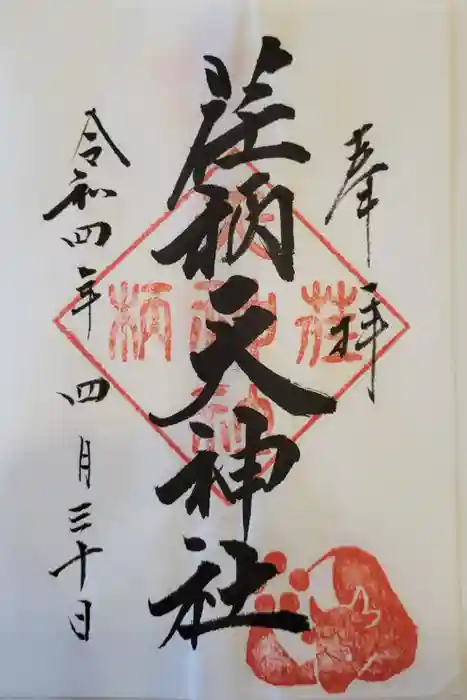 奉拝
荏柄天神社
令和四年四月三十日
荏柄天神社